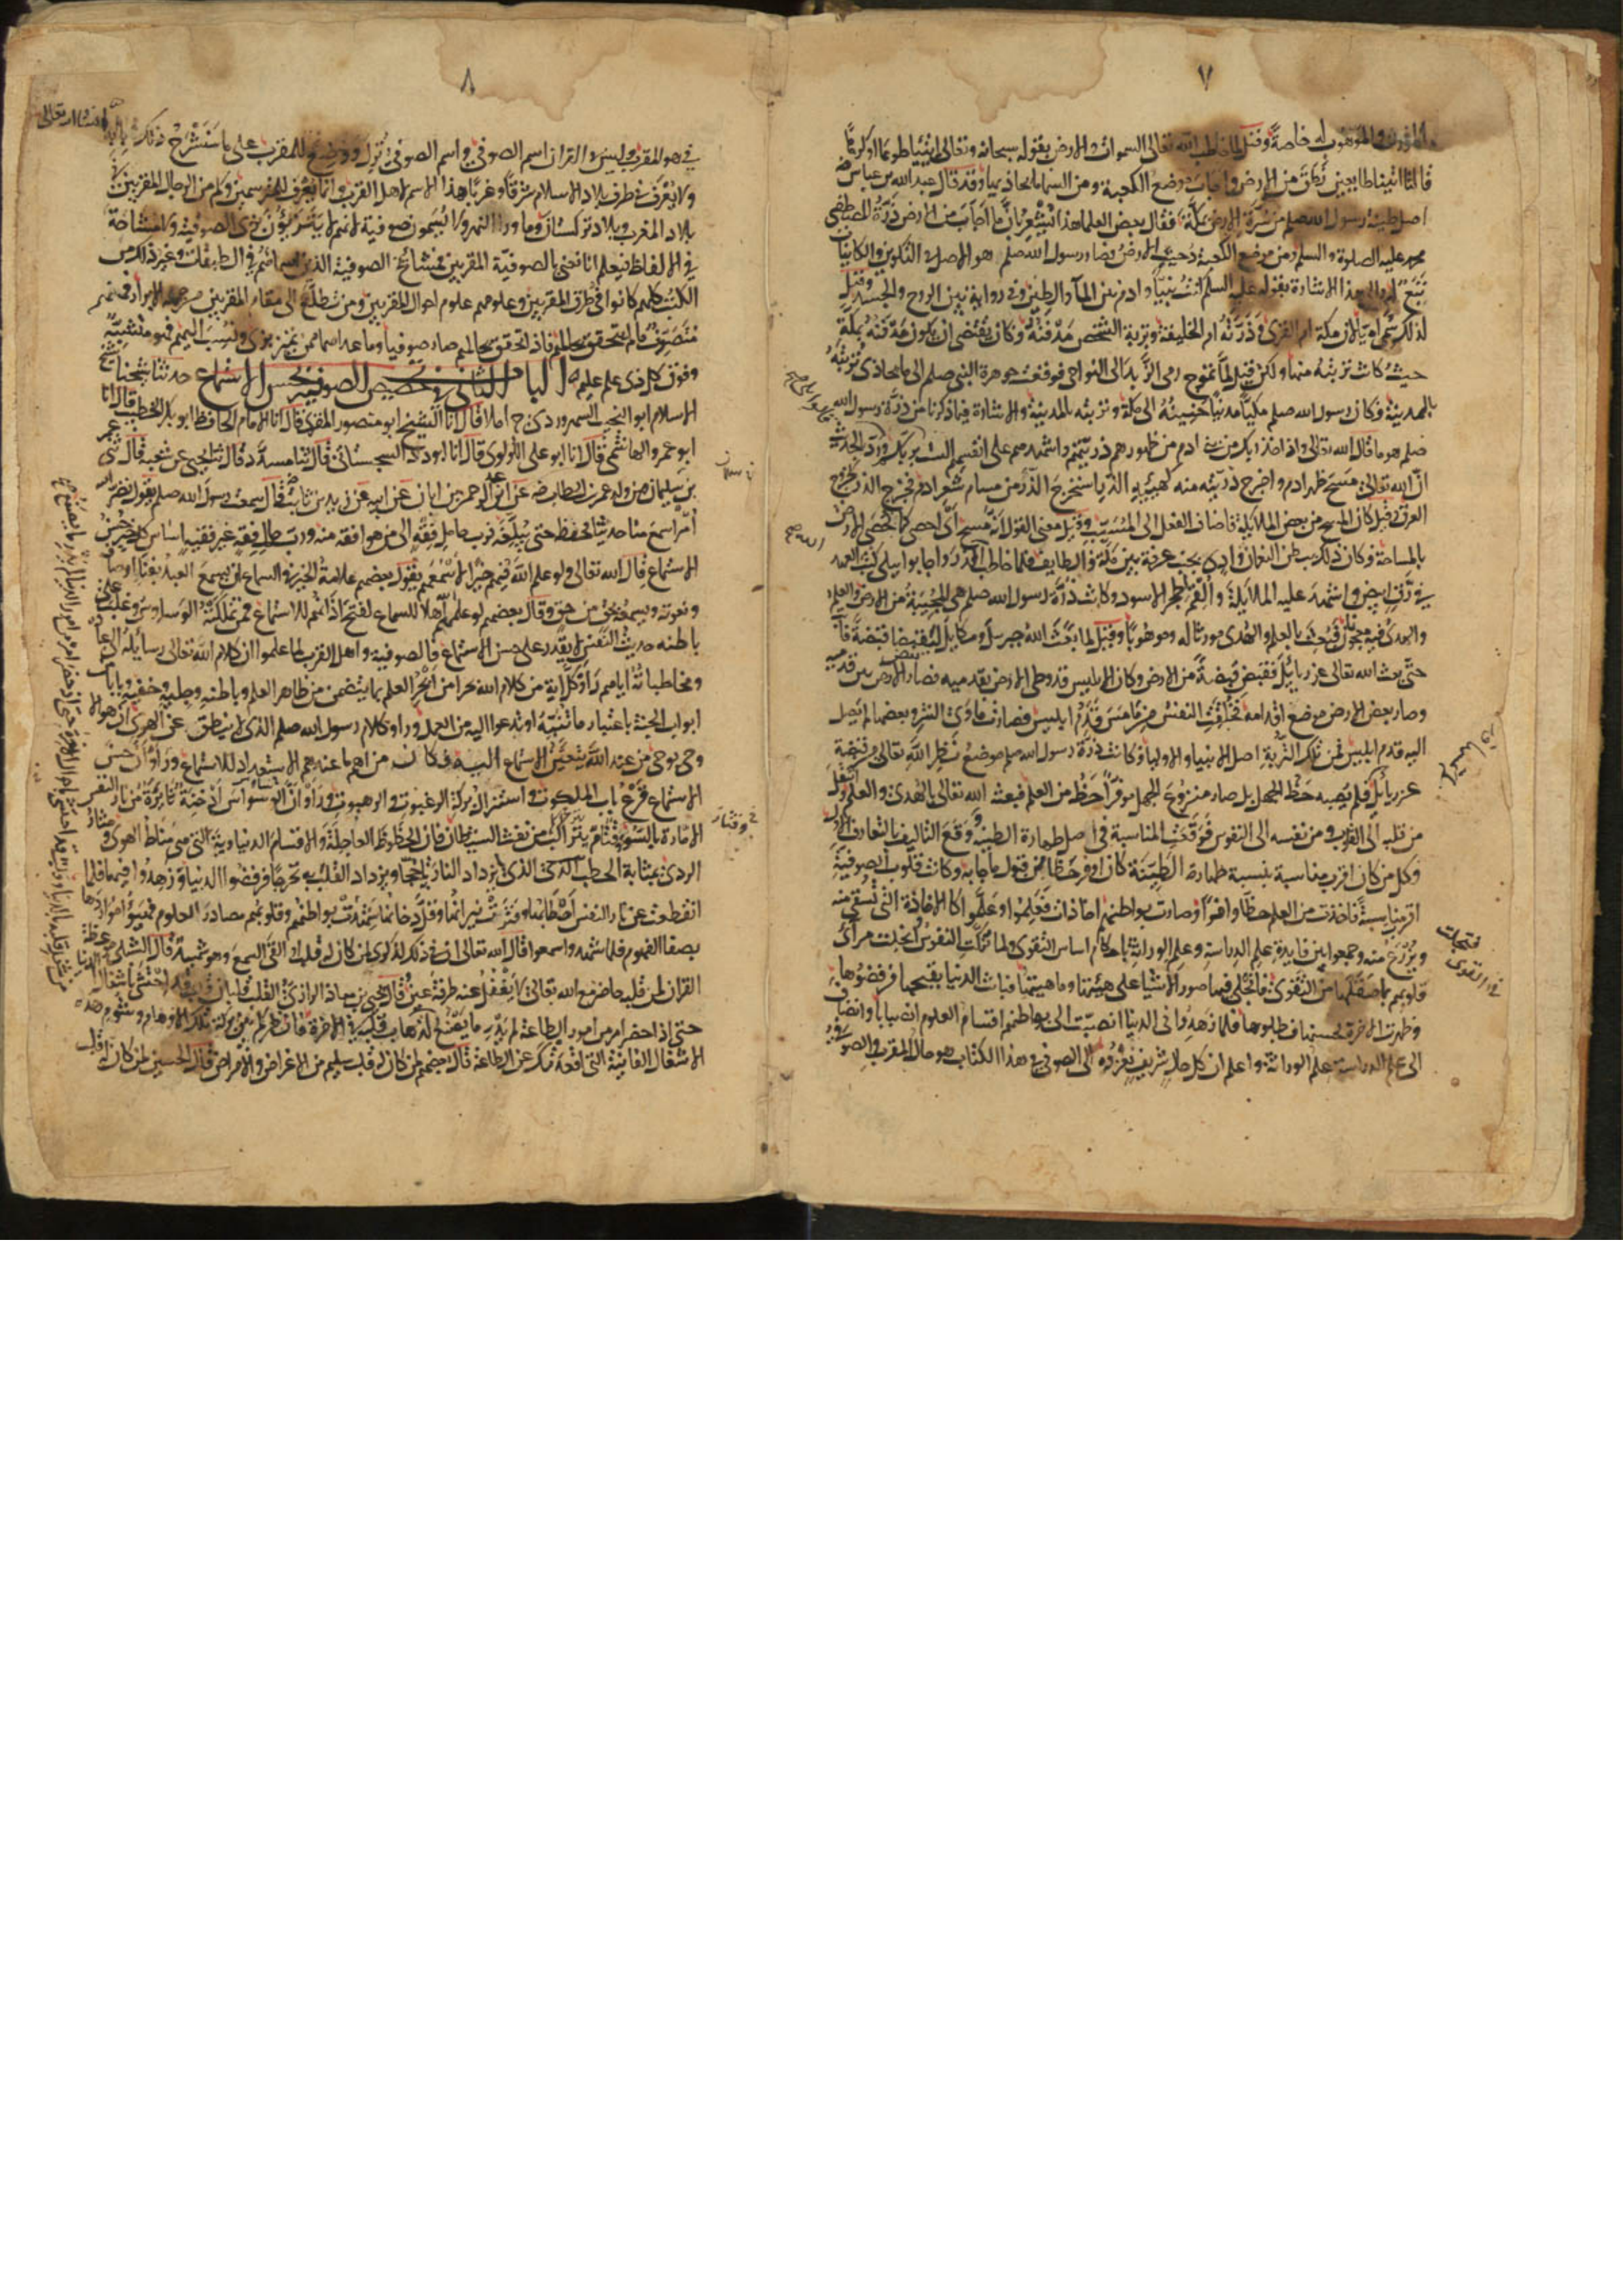 ٧
الموروث والموهوب له خاصة وقيل لما خاطب الله تعالى السموات والارض بقوله سبحانه وتعالى ائتيا طوعا او كرها
قالتا اتينا طايعين نطق من الارض واجاب موضع الكعبة ومن السماء ما يحاذيها وقد قال عبد الله بن عباس رضه
اصل طينة رسول الله صلعم من سرة الارض بمكة فقال بعض العلما هذا يشعر بان ما اجاب من الارض ذرة المصطفى
محمد عليه الصلوة والسلم ومن موضع الكعبة دحيت الارض فصار رسول الله صلعم هو الاصل في التكوين والكاينات
تبع له والى هذا الاشارة بقوله عليه السلم كنت نبيا وادم بين الماء والطين وفي رواية بين الروح والجسد وقيل
لذلك سمي اميا لان مكة ام القرى وذرته ام الخليقة وتربة الشخص مدفنه وكان يقتضي ان يكون مدفنه بمكة
حيث كانت تربته منها ولكن قيل لما تموج رمى الزبد الى النواحي فوقعت جوهرة النبي صلعم الى ما يحاذي تربته
بالمدينة فكان رسول الله صلعم مكيا مدنيا حنينه الى مكة وتربته بالمدينة والاشارة فيما ذكرنا من ذرة رسول الله
صلعم هو ما قال الله تعالى واذ اخذ ربك من بني ادم من ظهورهم ذريتهم واشهدهم على انفسهم الست بربكم وورد في الحديث
ان الله تعالى مسح ظهر ادم واخرج ذريته منه كهيئة الذر استخرج الذر من مسام شعر ادم فخرج الذر كخروج
العرق وقيل كان المسح من بعض الملايكة فاضاف الفعل الى المسبب وقيل معنى القول انه مسح اي احصى كما تحصى الارض
بالمساحة وكان ذلك ببطن النعمان واد بجنب عرفة بين مكة والطايف فلما خاطب الذر واجابوا ببلى كتب العهد
في رق ابيض واشهد عليه الملايكة والقم الحجر الاسود وكانت ذرة رسول الله صلعم هي المجيبة من الارض والعلم
والهدى فيه معجونان فبعث بالعلم والهدى موروثا له وموهوبا وقيل لما بعث الله جبريل وميكايل ليقبضا قبضة فابت
حتى بعث الله تعالى عزرايل فقبض قبضة من الارض وكان ابليس قد وطى الارض بقدميه فصار بعض الارض بين قدميه
وصار بعض الارض موضع اقدامه فخلقت النفس من ما مس قدم ابليس فصارت ماوى الشر وبعضها لم يصل
اليه قدم ابليس فمن تلك التربة اصل الانبياء والاولياء وكانت ذرة رسول الله صلعم موضع نظر الله تعالى من قبضة
عزرايل فلم يصبه حظ الجهل بل صار منزوع الجهل موفرا حظه من العلم فبعثه الله تعالى بالهدى والعلم وانتقل
من قلبه الى القلوب ومن نفسه الى النفوس فوقعت المناسبة في اصل طهارة الطينة ووقع التاليف بالتعارف الاول
وكل من كان اقرب مناسبة بنسبة طهارة الطينة كان اوفر حظا من قبول ما جا به وكانت قلوب الصوفية
اقرب مناسبة فاخذت من العلم حظا وافرا وصارت بواطنهم اخاذات فعلموا وعلموا كالاخاذة التي تسقى منه
ويزرع منه وجمعوا بين فايدة علم الدراسة وعلم الوراثة باحكام اساس التقوى ولما تزكت النفوس انجلت مرائي
قلوبهم بما صقلها من التقوى فانجلى فيها صور الاشيا على هيئتها وماهيتها فبانت الدنيا بقبحها فرفضوها
وظهرت الاخرة لحسنها فطلبوها فلما زهدوا في الدنيا انصبت الى بواطنهم اقسام العلوم انصبابا وانضاف
الى علم الدراسة علم الوراثة واعلم ان كل حال شريف نعزوه الى الصوفية في هذا الكتاب هو حال المقرب والصوفي
٨
في هو المقرب وليس في القران اسم الصوفي واسم الصوفي ترك ووضع للمقرب على ما سنشرح ذلك في بابه ان شا الله تعالى
ولا يعرف في طرفي بلاد الاسلام شرقا وغربا هذا الاسم لاهل القرب وانما يعرف للمترسمين وكم من الرجال المقربين في
بلاد المغرب وبلاد تركستان وما ورا النهر ولا يسمون صوفية لانهم لا يتزيون بزي الصوفية ولا مشاحة
في الالفاظ فيعلم انا نعني بالصوفية المقربين فمشائخ الصوفية الذين اسماؤهم في الطبقات وغير ذلك من
الكتب كلهم كانوا في طرق المقربين وعلومهم علوم احوال المقربين ومن تطلع الى مقام المقربين من جملة الابرار فهو منهم
متصوف ما لم يتحقق بحالهم فاذا تحقق بحالهم صار صوفيا وما عداهما ممن تميز بزي ونسب اليهم فهو متشبه
وفوق كل ذي علم عليم الباب الثاني في تخصيص الصوفية بحسن الاستماع حدثنا شيخنا شيخ
الاسلام ابو النجيب السهروردي رح املا قال انا الشيخ ابو منصور المقري قال انا الامام الحافظ ابو بكر الخطيب قال انا
ابو عمرو الهاشمي قال انا ابو علي اللولوي قال انا ابو داود السجستاني قال ثنا مسدد قال ثنا يحيى عن شعبة قال ثني عمر
بن سليمان من ولد عمر بن الخطاب رضه عن عبد الرحمن بن ابان عن ابيه عن زيد بن ثابت قال سمعت رسول الله صلعم يقول نضر الله
امرا سمع منا حديثا فحفظه حتى يبلغه فرب حامل فقه الى من هو افقه منه ورب حامل فقه غير فقيه اساس كل خير حسن
الاستماع قال الله تعالى ولو علم الله فيهم خيرا لاسمعهم يقول بعضهم علامة الخير في السماع ان يسمع العبد بفنا اوصافه
ونعوته ويسمعه بحق من حق وقال بعضهم لو علمهم اهلا للسماع لفتح اذانهم للاستماع فمن تملكته الوساوس وغلب على
باطنه حديث النفس لا يقدر على حسن الاستماع فالصوفية واهل القرب لما علموا ان كلام الله تعالى رسايله الى عباده
ومخاطباته اياهم راوا كل اية من كلام الله بحرا من ابحر العلم بما يتضمن من ظاهر العلم وباطنه وجليه وخفيه وبابا من
ابواب الجنة باعتبار ما تنبه او تدعوا اليه من العمل وراوا كلام رسول الله صلعم الذي لا ينطق عن الهوى ان هو الا
وحي يوحى من عند الله يتعين الاستماع اليه فكان من اهم ما عندهم الاستعداد للاستماع وراوا ان حسن
الاستماع قرع باب الملكوت واستنزال بركة الرغبوت والرهبوت وراوا ان الوسواس ادخنة ثايرة من نار النفس
الامارة بالسوء وقتام يتراكم من نفث الشيطان فان الحظوظ العاجلة والاقسام الدنياوية التي هي مناط الهوى ومثار
الردى بمثابة الحطب الذي يزداد النار به تاججا ويزداد القلب به تحرجا فرفضوا الدنيا وزهدوا فيها فلما
انقطعت عن نار النفس احطابها وفترت نيرانها وقل دخانها شهدت بواطنهم وقلوبهم مصادر العلوم فهيؤا مواردها
بصفا الفهوم فلما شهدوا سمعوا قال الله تعالى ان في ذلك لذكرى لمن كان له قلب او القى السمع وهو شهيد قال الشبلي موعظة
القران لمن قلبه حاضر مع الله تعالى لا يغفل عنه طرفة عين قال يحيى بن معاذ الرازي القلب قلبان قلب قد احتشى باشغال الدنيا
حتى اذا حضر امر من امور الطاعة لم يدر ما يصنع
الاشغال الفانية التي اقعدتك عن الطاعة قال بعضهم لمن كان له قلب سليم من الاغراض والامراض قال الحسين لمن كان له قلب